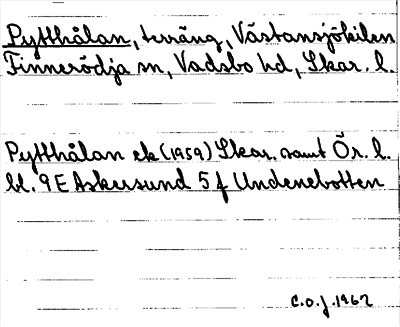 Pytthålan, teräng, Västansjökilen
Finnerödja sn, Vadsbo hd, Skar. l.
Pytthålan ek (1959) Skar. samt Ör. l.
bl. 9 E Askersund 5 f Undenebotten
C.O.J. 1962